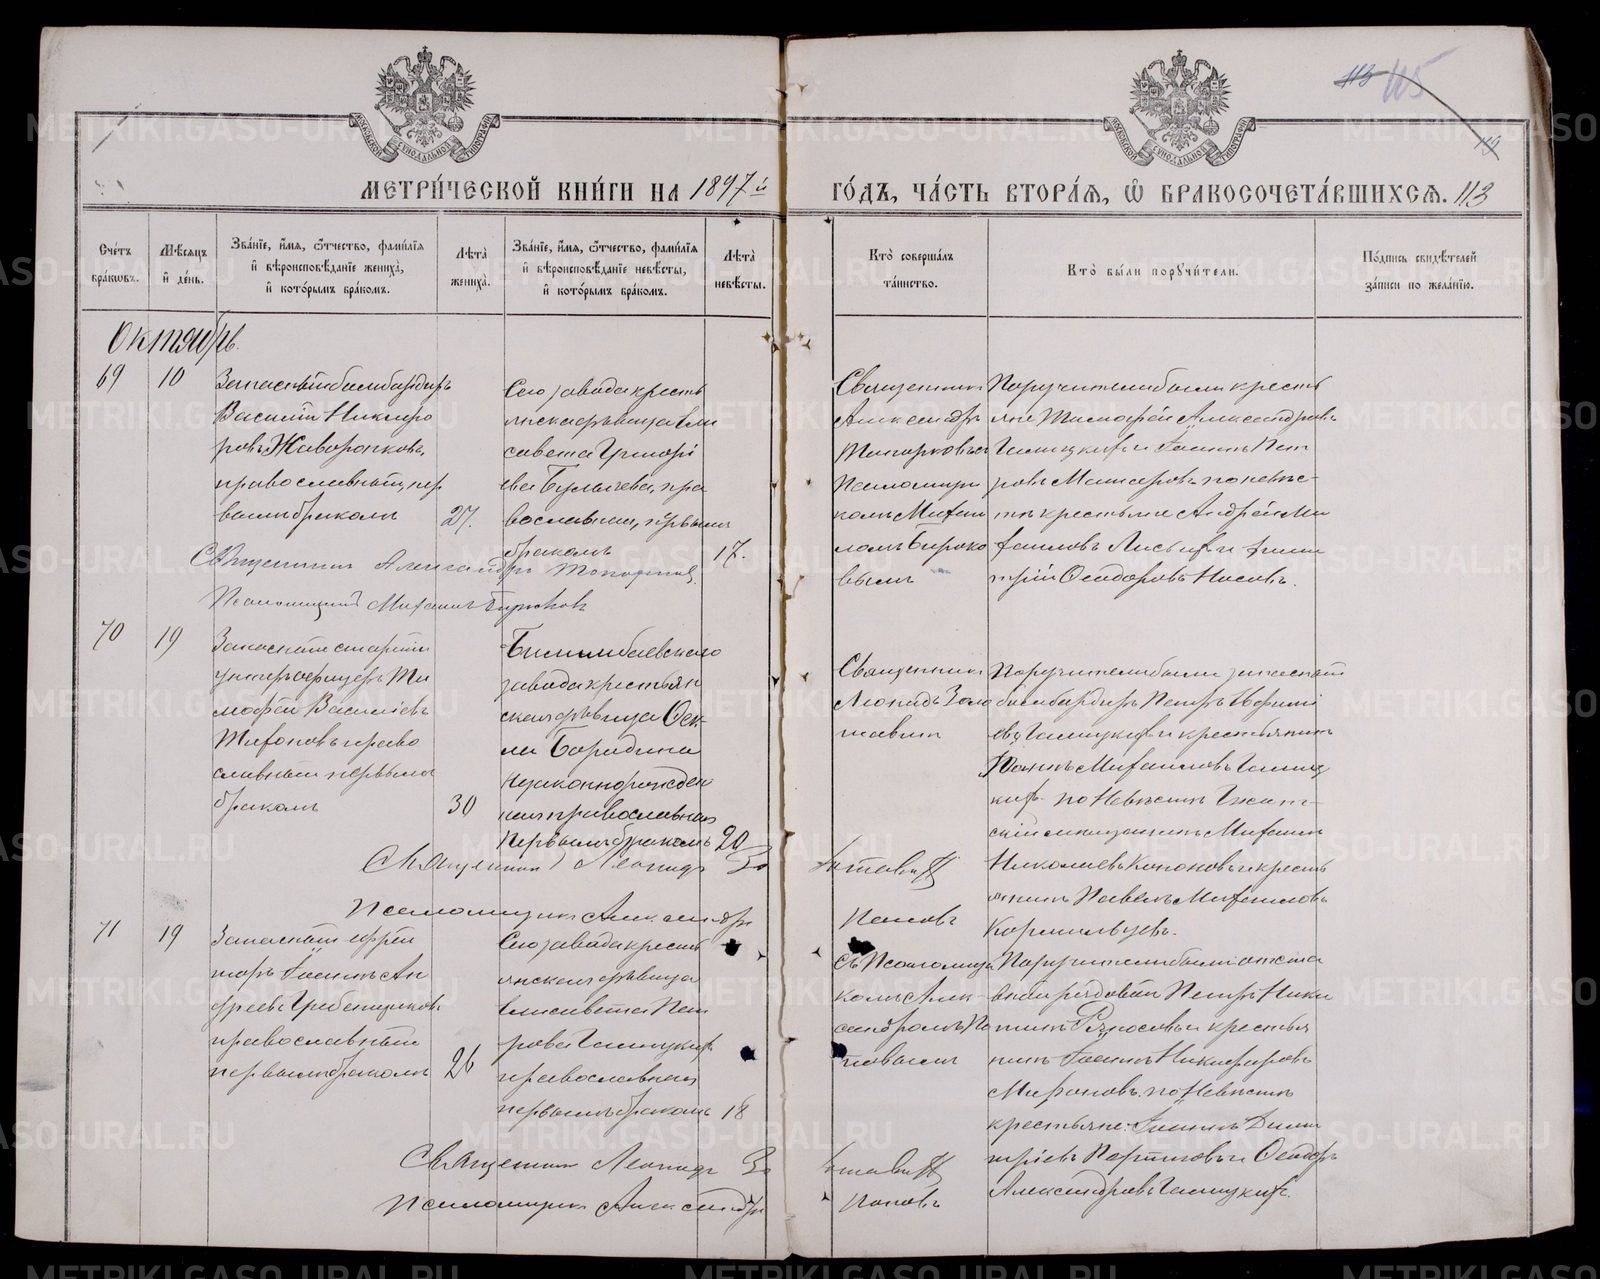 113 115
119
МОСКОВСКОЙ СУНОДАЛЬНОЙ ТИПОГРАФІИ
МОСКОВСКОЙ СУНОДАЛЬНОЙ ТИПОГРАФІИ
МЕТРИ́ЧЕСКОЙ КНИ́ГИ НА 1897й
ГО́ДЪ, ЧА́СТЬ ВТОРА́Я, Ѡ БРАКОСОЧЕТА́ВШИХСЯ. 113
Сче́тъ бра́кωвъ.
Мѣ́сяцъ и де́нь.
Зва́нїе, и́мя, ѻ́тчество, фами́лїя и вѣроисповѣ́данїе жениха̀, и кото́рымъ бра́комъ.
Лѣта̀ жениха̀.
Зва́нїе, и́мя, ѻ́тчество, фами́лїя и вѣроисповѣ́данїе невѣ́сты, и кото́рымъ бра́комъ.
Лѣта̀ невѣ́сты.
Кто̀ соверша́лъ та́инство.
Кто̀ бы́ли поручи́тели.
По́дпись свидѣ́телей за́писи по жела́нїю.
Октябрь.
69
10
Запасный бамбардиръ
Василій Никифо
ровъ Жаворонковъ,
православный, пер
вымъ бракомъ
27.
Сего завода кресть
янская дѣвица Ели
савета Григорі
ева Булычева, пра
вославная, первымъ
бракомъ
17.
Священникъ
Александръ
Топорковъ съ
Псаломщи
комъ Михаи
ломъ Бирюко
вымъ
Поручители были кресть
яне Тимофей Александровъ
Галицкихъ и Іоаннъ Пет
ровъ Макаровъ по невѣс-
тѣ крестьяне Андрей Ми
хаиловъ Лисьихъ и Дими
трій Ѳеодоровъ Носовъ.
Священникъ Александръ Топорковъ
Псаломщикъ Михаилъ Бирюковъ
70
19
Запасный старшій
унтеръ офицеръ Ти
мофей Василіевъ
Тихоновъ право
славный первымъ
бракомъ
30
Билимбаевскаго
завода крестьян
ская дѣвица Ѳек
ла Бородина
незаконнорожден
ная православная
первымъ бракомъ
20
Священникъ
Леонидъ Золо
тавинъ
Поручители были запасный
бамбардиръ Петръ Ефимі
евъ Галицкихъ и крестьянинъ
Іоаннъ Михаиловъ Галиц
кихъ. по Невѣстѣ
мѣщанинъ Михаилъ
Николаевъ Кононовъ и кресть
янинъ Павелъ Михаиловъ
Кормильцевъ.
Священникъ Леонидъ Золотавинъ
Псаломщикъ Александръ Поповъ
71
19
Запасный ефрей
торъ Іоаннъ Ан
дреевъ Гребенщиковъ
православный
первымъ бракомъ
26
Сего завода кресть
янская дѣвица
Елисавета Пет
рова Галицкихъ
православная
первымъ бракомъ
18
съ Псаломщи
комъ Алек
сандромъ По
повымъ
Поручители были отста
вной рядовой Петръ Ники
тинъ и крестья
нинъ Іоаннъ Никифоровъ
Мироновъ. по Невѣстѣ
крестьяне: Іоаннъ Дими
тріевъ Портновъ и Ѳеодоръ
Александровъ Галицкихъ.
Священникъ Леонидъ Золотавинъ
Псаломщикъ Александръ Поповъ
METRIKI.GASO-URAL.RU